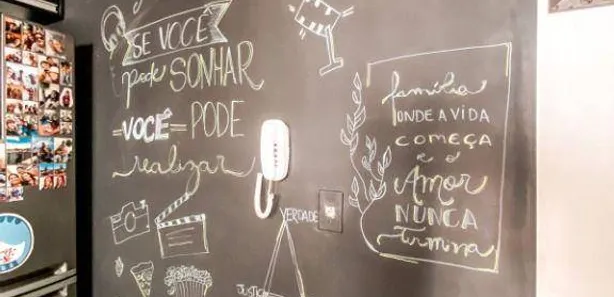 SE VOCÊ
pode SONHAR
=VOCÊ= PODE
realizar
família
ONDE A VIDA
COMEÇA
e o
Amor
NUNCA
Termina
VERDADE
JUSTIÇA